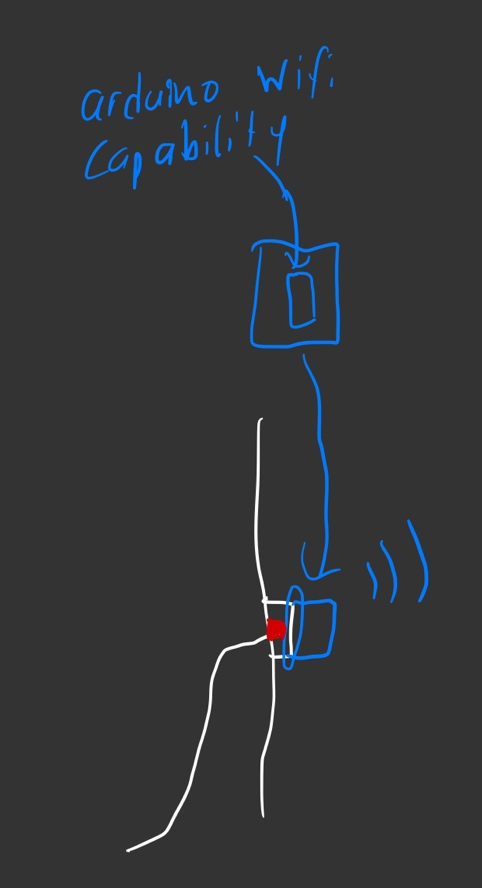 arduino Wifi
Capability